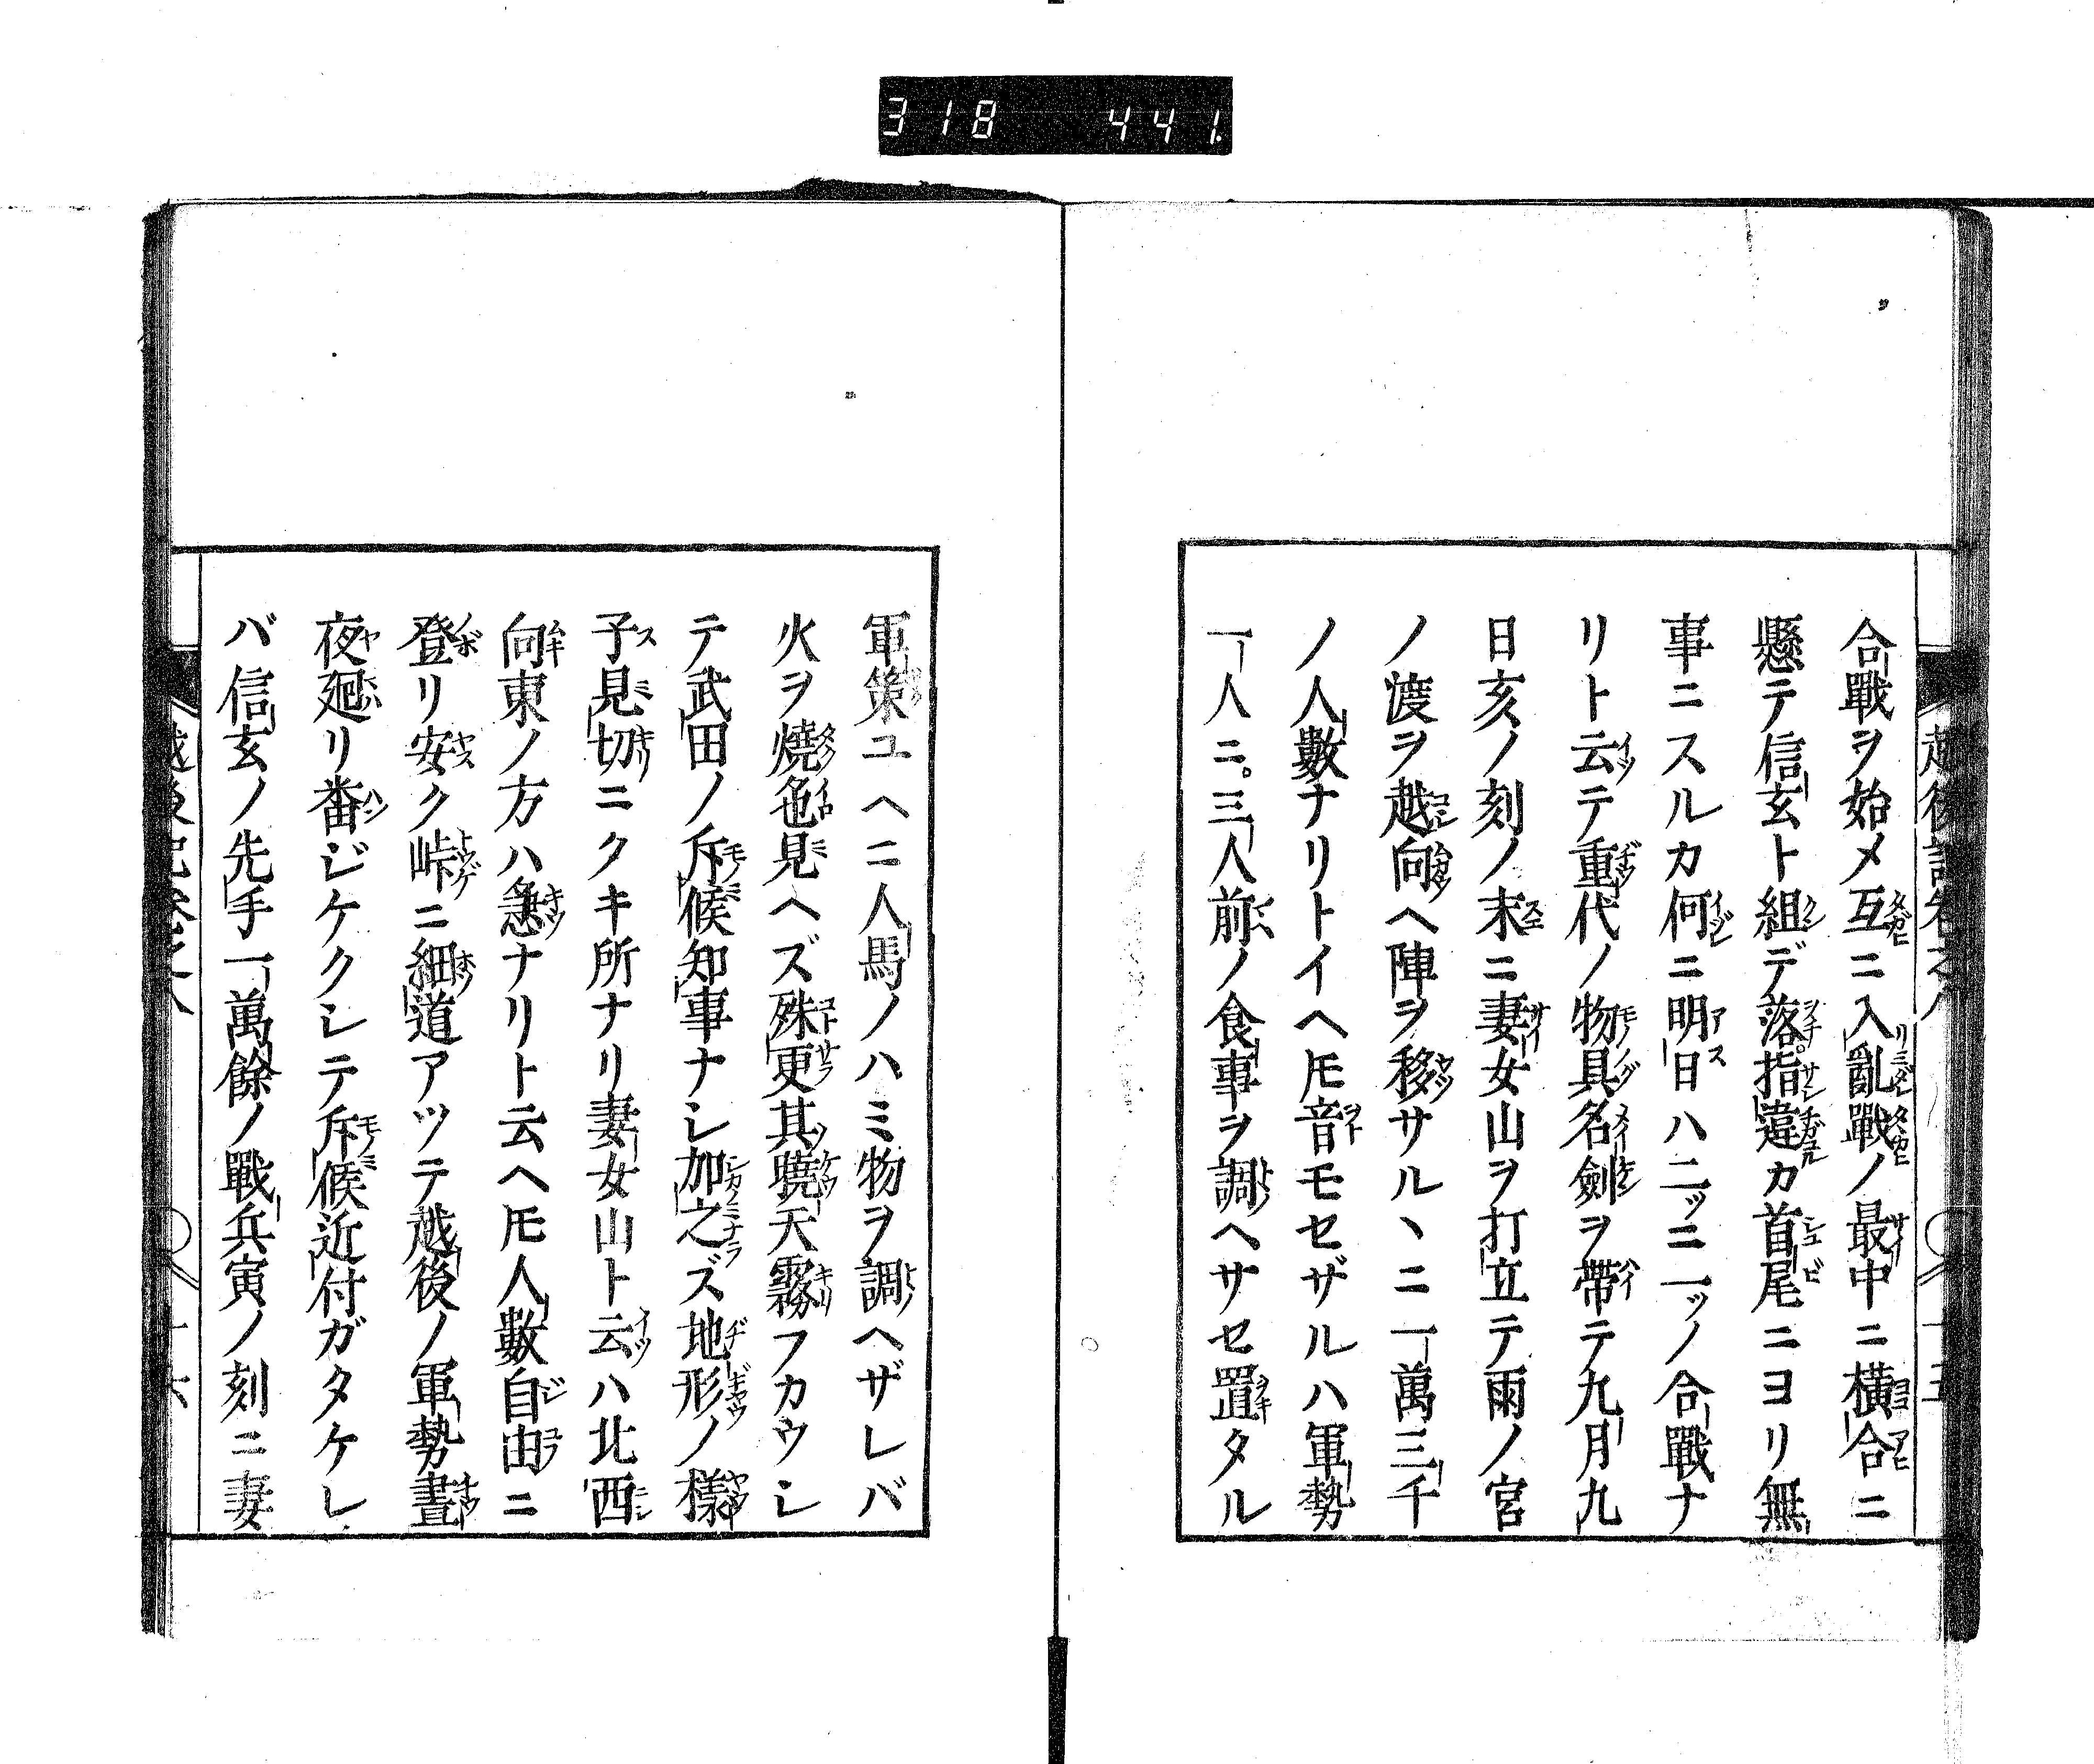 318 441.
越後記卷之八
合戰ヲ始メ互ニ入亂戰ノ最中ニ横合ニ
懸テ信玄ト組デ落指違カ首尾ニヨリ無
事ニスルカ何ニ明日ハ二ッニ一ッノ合戰ナ
リト云テ重代ノ物具名劍ヲ帶テ九月九
日亥ノ刻ノ末ニ妻女山ヲ打立テ雨ノ宮
ノ渡ヲ越向ヘ陣ヲ移サルヽニ一萬三千
ノ人數ナリトイヘ𪜈音モセザルハ軍勢
一人ニ。三人前ノ食事ヲ調ヘサセ置タル
軍策ユヘニ人馬ノハミ物ヲ調ヘザレバ
火ヲ燒色見ヘズ殊更其曉天霧フカウシ
テ武田ノ斥候知事ナシ加之ズ地形ノ樣
子見切ニクキ所ナリ妻女山ト云ハ北西
向東ノ方ハ急ナリト云ヘ𪜈人數自由ニ
登リ安ク峠ニ細道アツテ越後ノ軍勢晝
夜廻リ番ジケクシテ斥候近付ガタケレ
バ信玄ノ先手一萬餘ノ戰兵寅ノ刻ニ妻
越後記卷之八